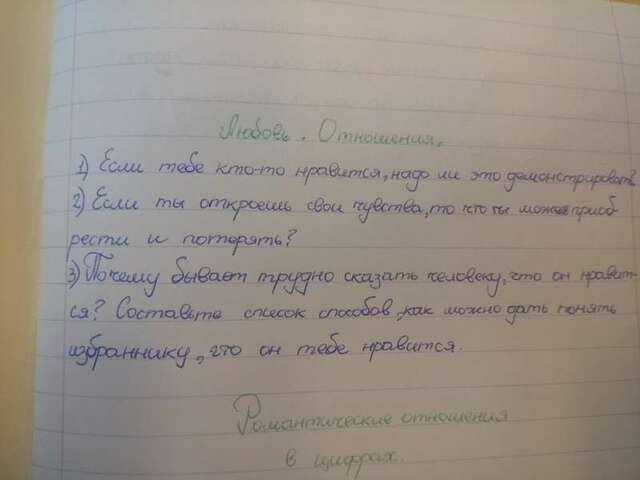 Любовь. Отношения.
1) Если тебе кто-то нравится, надо ли это демонстрировать?
2) Если ты откроешь свои чувства, то что ты можешь приоб
рести и потерять?
3) Почему бывает трудно сказать человеку, что он нравит-
ся? Составьте список способов, как можно дать понять
избраннику, что он тебе нравится.
Романтические отношения
в цифрах.